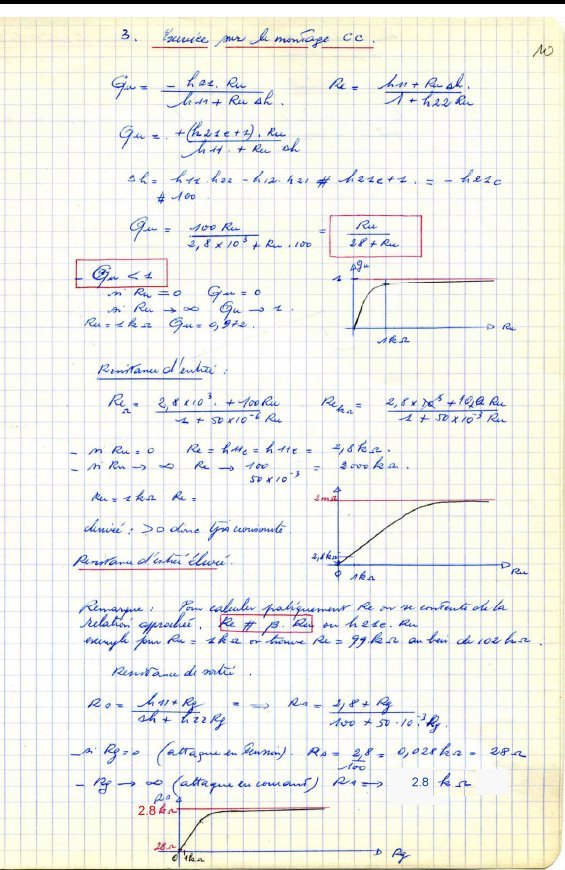 3. Exercice sur le montage CC.
10
Gu = - h21. Ru / h11 + Ru Δh. Re = h11 + Ru Δh. / 1 + h22 Ru
Gu = +(h21e+1). Ru / h11. + Ru. Δh
Δh = h11. h22 - h12. h21 # h21e+1. = - h21c
# 100
Gu = 100 Ru / 2,8 x 10³ + Ru. 100 = Ru / 28 + Ru
- Gu < 1
si Ru = 0 Gu = 0
si Ru → ∞ Gu → 1.
Ru = 1kΩ Gu = 0,972.
gu
1
Ru
1kΩ
Résistance d'entrée :
ReΩ = 2,8x10³. + 100Ru / 1 + 50x10⁻⁶ Ru RekΩ = 2,8 x 10³ + 100 Ru / 1 + 50x10⁻³ Ru
- si Ru = 0 Re = h11c = h11e = 2,8kΩ.
- si Ru → ∞ Re → 100 / 50x10⁻³ = 2000kΩ.
Ru = 1kΩ Re =
dérivée : >0 donc tjrs croissante.
Résistance d'entrée élevée.
2mΩ
2,8kΩ
0 1kΩ
Ru
Remarque : Pour calculer pratiquement Re on se contente de la
relation approchée. Re # β. Ru ou h21e. Ru
exemple pour Ru = 1kΩ on trouve Re = 99kΩ au lieu de 102kΩ.
Résistance de sortie.
Rs = h11 + Rg / Δh + h22 Rg = ⇒ Rs = 2,8 + Rg / 100 + 50.10⁻³ Rg.
- si Rg = 0 (attaque en tension). Rs = 2,8 / 100 = 0,028kΩ = 28Ω
- Rg → ∞ (attaque en courant) Rs ⇒ 2.8 kΩ
Rs
2.8 kΩ
28Ω
0 1kΩ
Rg